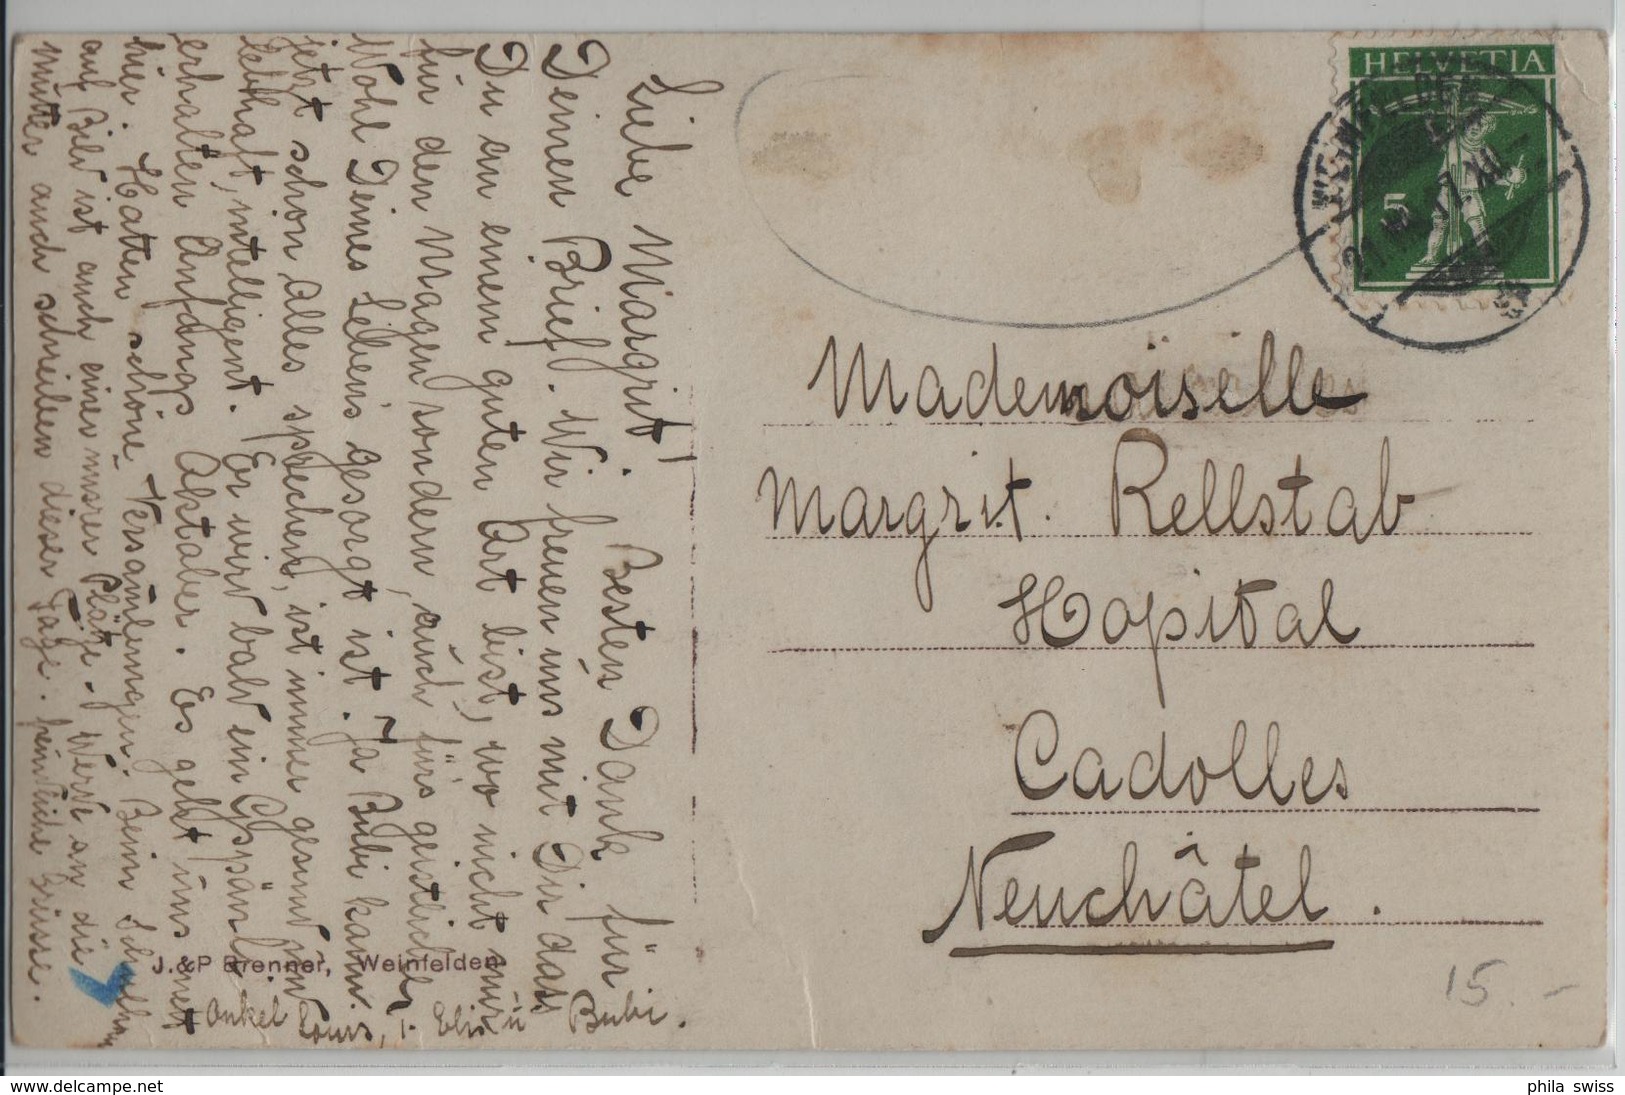 Liebe Margrit!
Besten Dank für
Deinen Brief. Wir freuen uns mit Dir dass
Du an einem guten Ort bist, wo nicht nur
für den Magen sondern, auch fürs geistliche
Wohl Deines Lebens gesorgt ist. Ja Bubi kann
jetzt schon alles sprechen, ist immer gesund und
lebhaft, intelligent. Er wird bald ein Gspänli
erhalten Anfangs Oktober. Es geht uns nett
hier. Hatten schöne Versammlungen. Beim
auf Bild ist auch einer unsrer Plätze. Werde an die
mutter auch schreiben dieser Tage. Herzliche Grüsse.
Onkel Louis, T. Elis u Bubi.
J. & P Brenner, Weinfelden
HELVETIA
5
WEINFELDEN
Mademoiselle
Margrit. Rellstab
Hopital
Cadolles
Neuchâtel.
15.-
www.delcampe.net
phila swiss